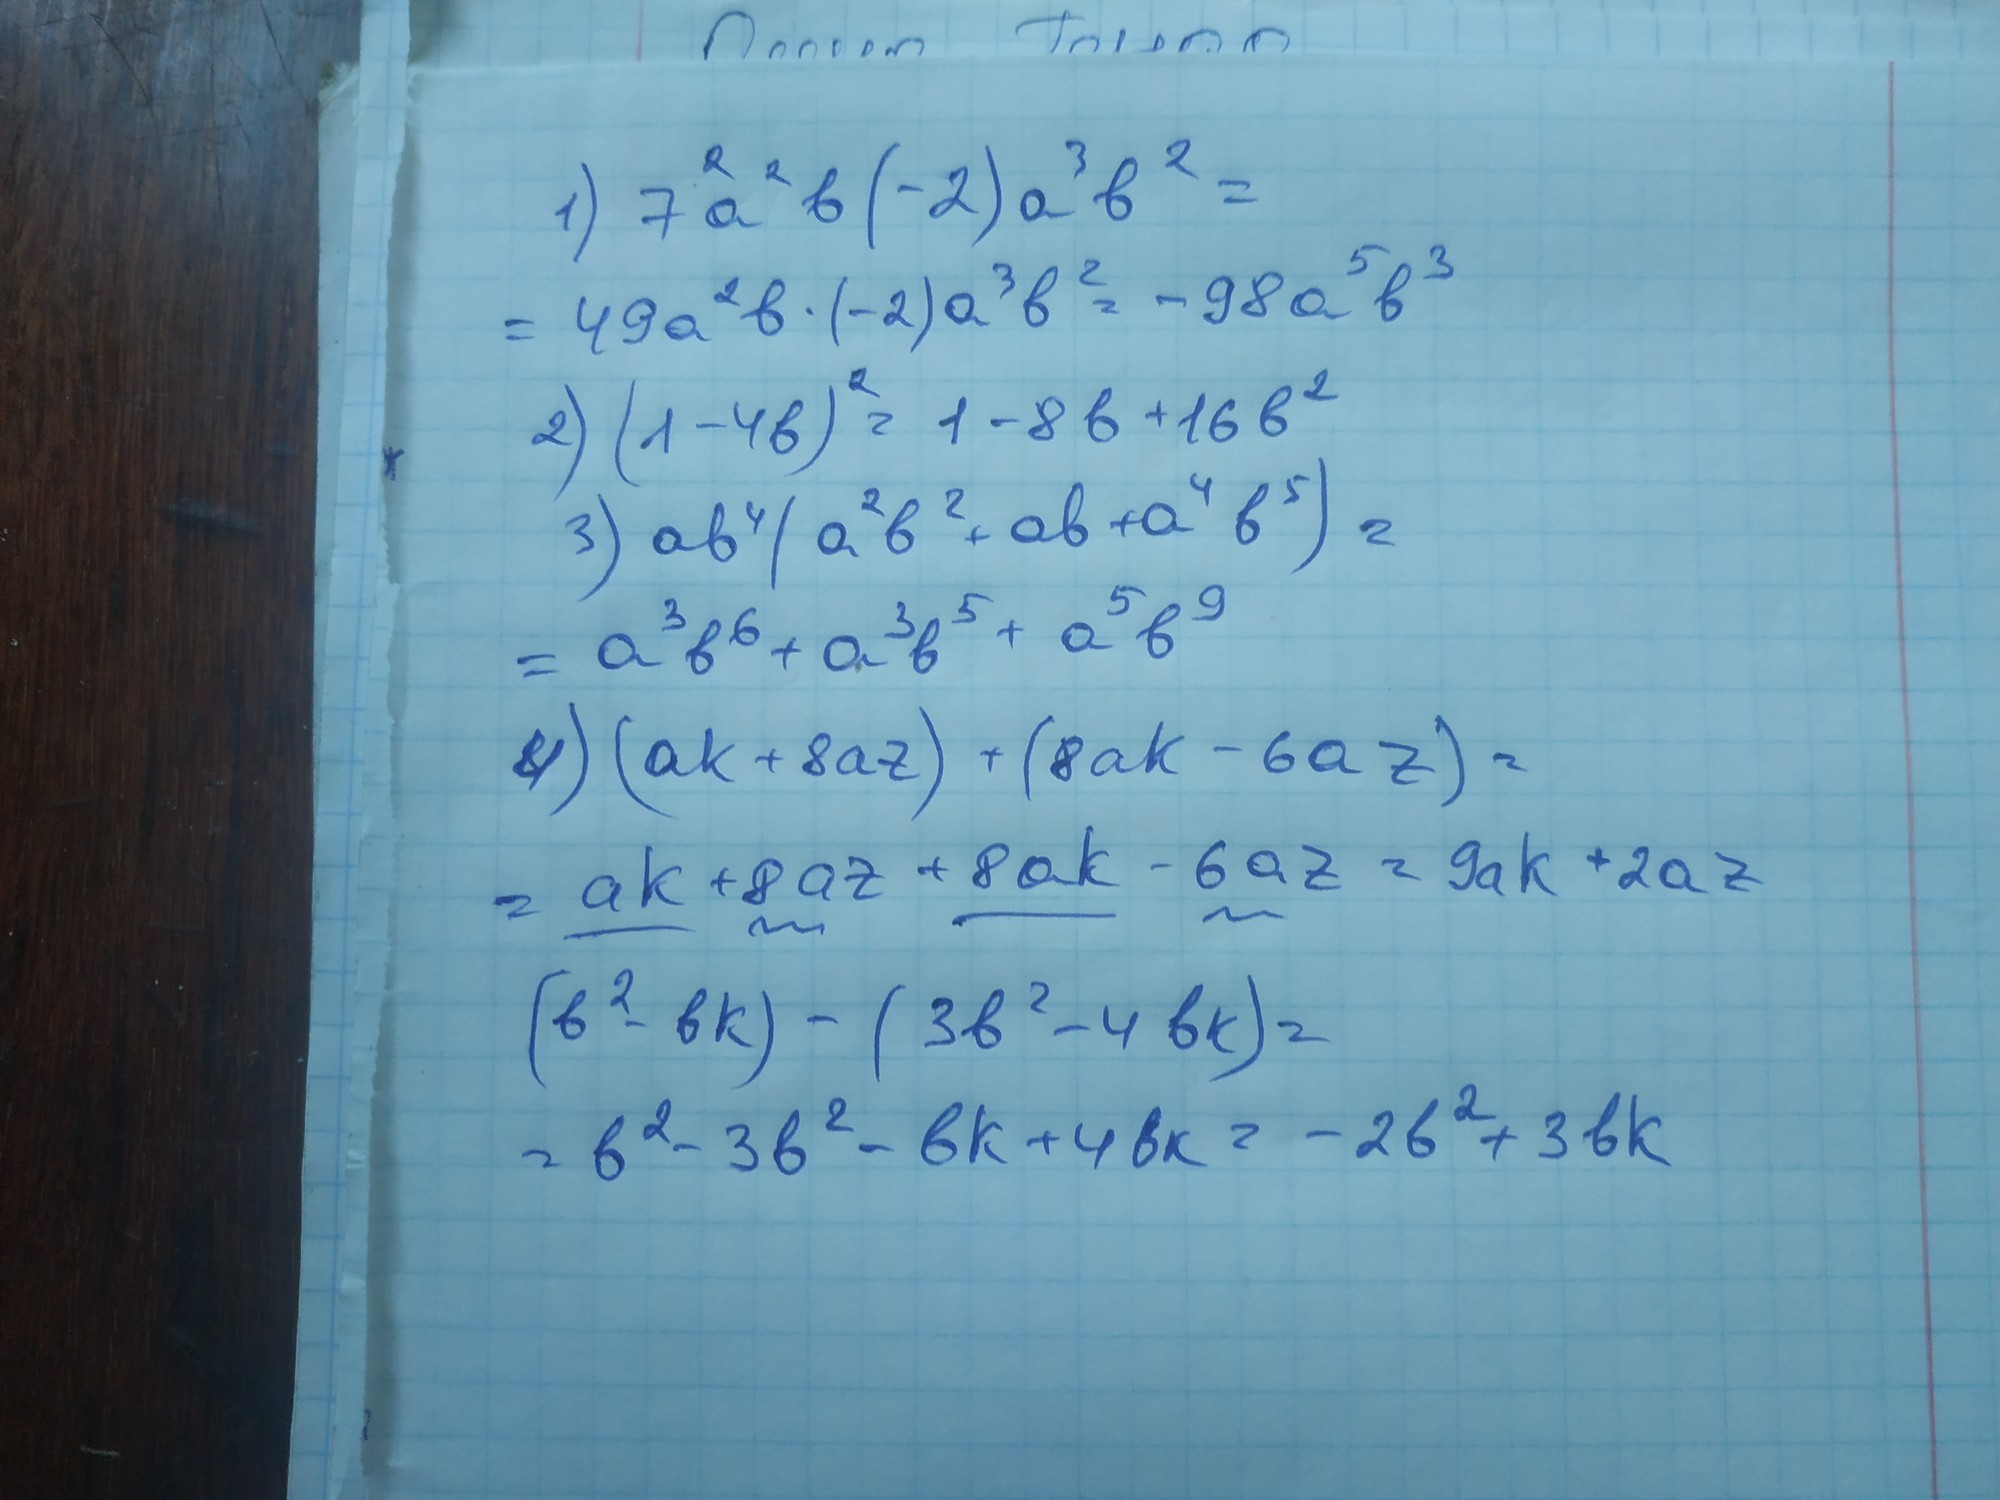 1) 7²a²b(-2)a³b² =
= 49a²b·(-2)a³b² = -98a⁵b³
2) (1-4b)² = 1-8b+16b²
3) ab⁴(a²b²+ab+a⁴b⁵) =
= a³b⁶ + a³b⁵ + a⁵b⁹
4) (ak+8az) + (8ak-6az) =
= ak+8az+8ak-6az = 9ak+2az
(b²-bk) - (3b²-4bk) =
= b²-3b²-bk+4bk = -2b²+3bk